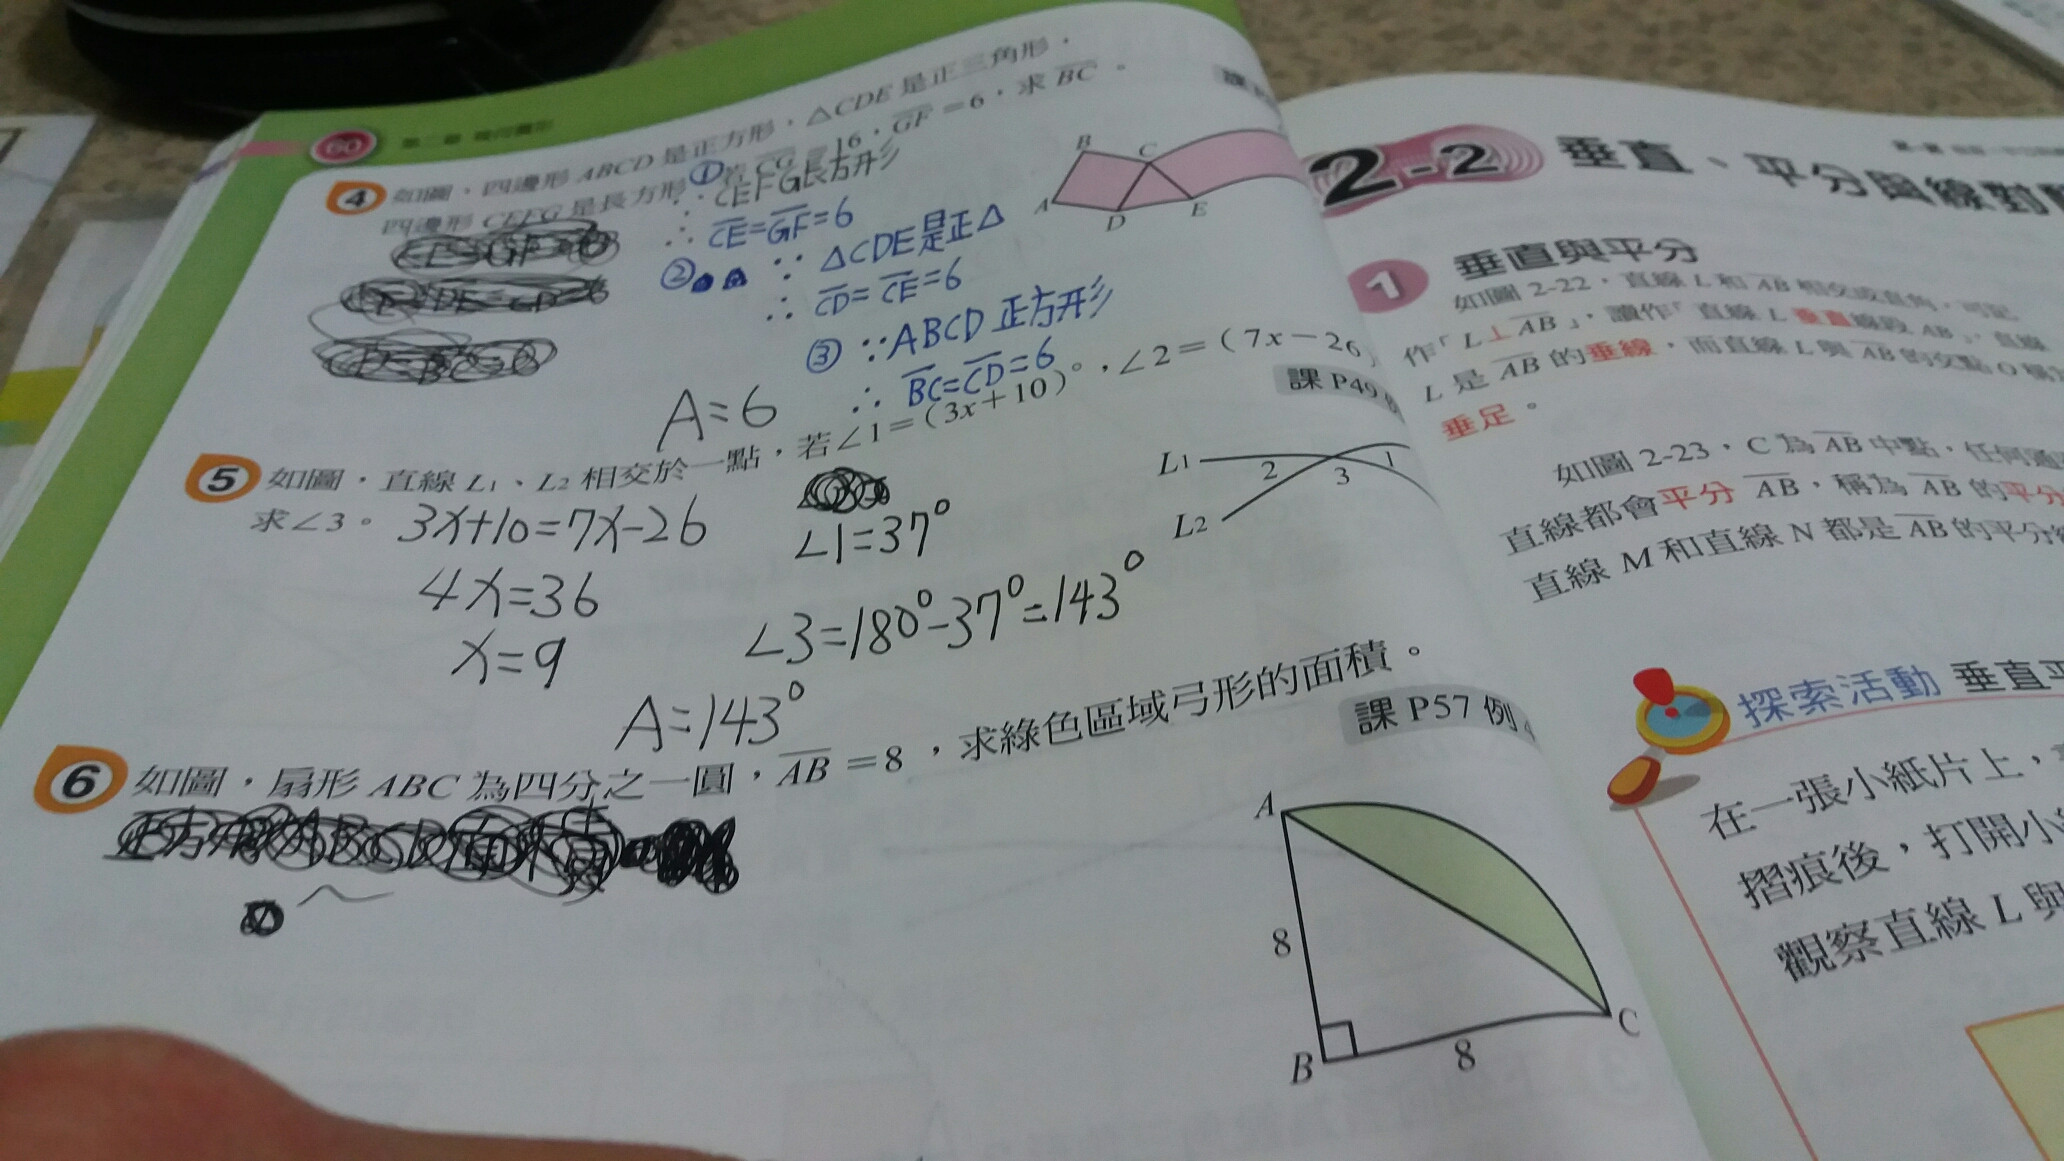 60 第二章 幾何圖形
4 如圖，四邊形 ABCD 是正方形，△CDE 是正三角形，
四邊形 CEFG 是長方形，若 CG = 16，GF = 6，求 BC。
① ∵ CEFG長方形
∴ CE=GF=6
② ∵ △CDE是正△
∴ CD=CE=6
③ ∵ ABCD 正方形
∴ BC=CD=6
A=6
B C
A D E
5 如圖，直線 L1、L2 相交於一點，若∠1=(3x+10)°，∠2=(7x-26
求∠3。
課 P49
3x+10=7x-26
4x=36
x=9
∠1=37°
∠3=180°-37°=143°
A=143°
L1 2 3 1
L2
6 如圖，扇形 ABC 為四分之一圓，AB=8，求綠色區域弓形的面積。
課 P57 例
A
8
B 8 C
2-2 垂直、平分與線對
1 垂直與平分
如圖 2-22，直線 L 和 AB 相交成直角，可記
作「L⊥AB」，讀作「直線 L 垂直線段 AB」，直線
L 是 AB 的垂線，而直線 L 與 AB 的交點 O 稱
垂足。
如圖 2-23，C 為 AB 中點，任何通
直線都會平分 AB，稱為 AB 的平分
直線 M 和直線 N 都是 AB 的平分
探索活動 垂直平
在一張小紙片上，
摺痕後，打開小
觀察直線 L 與